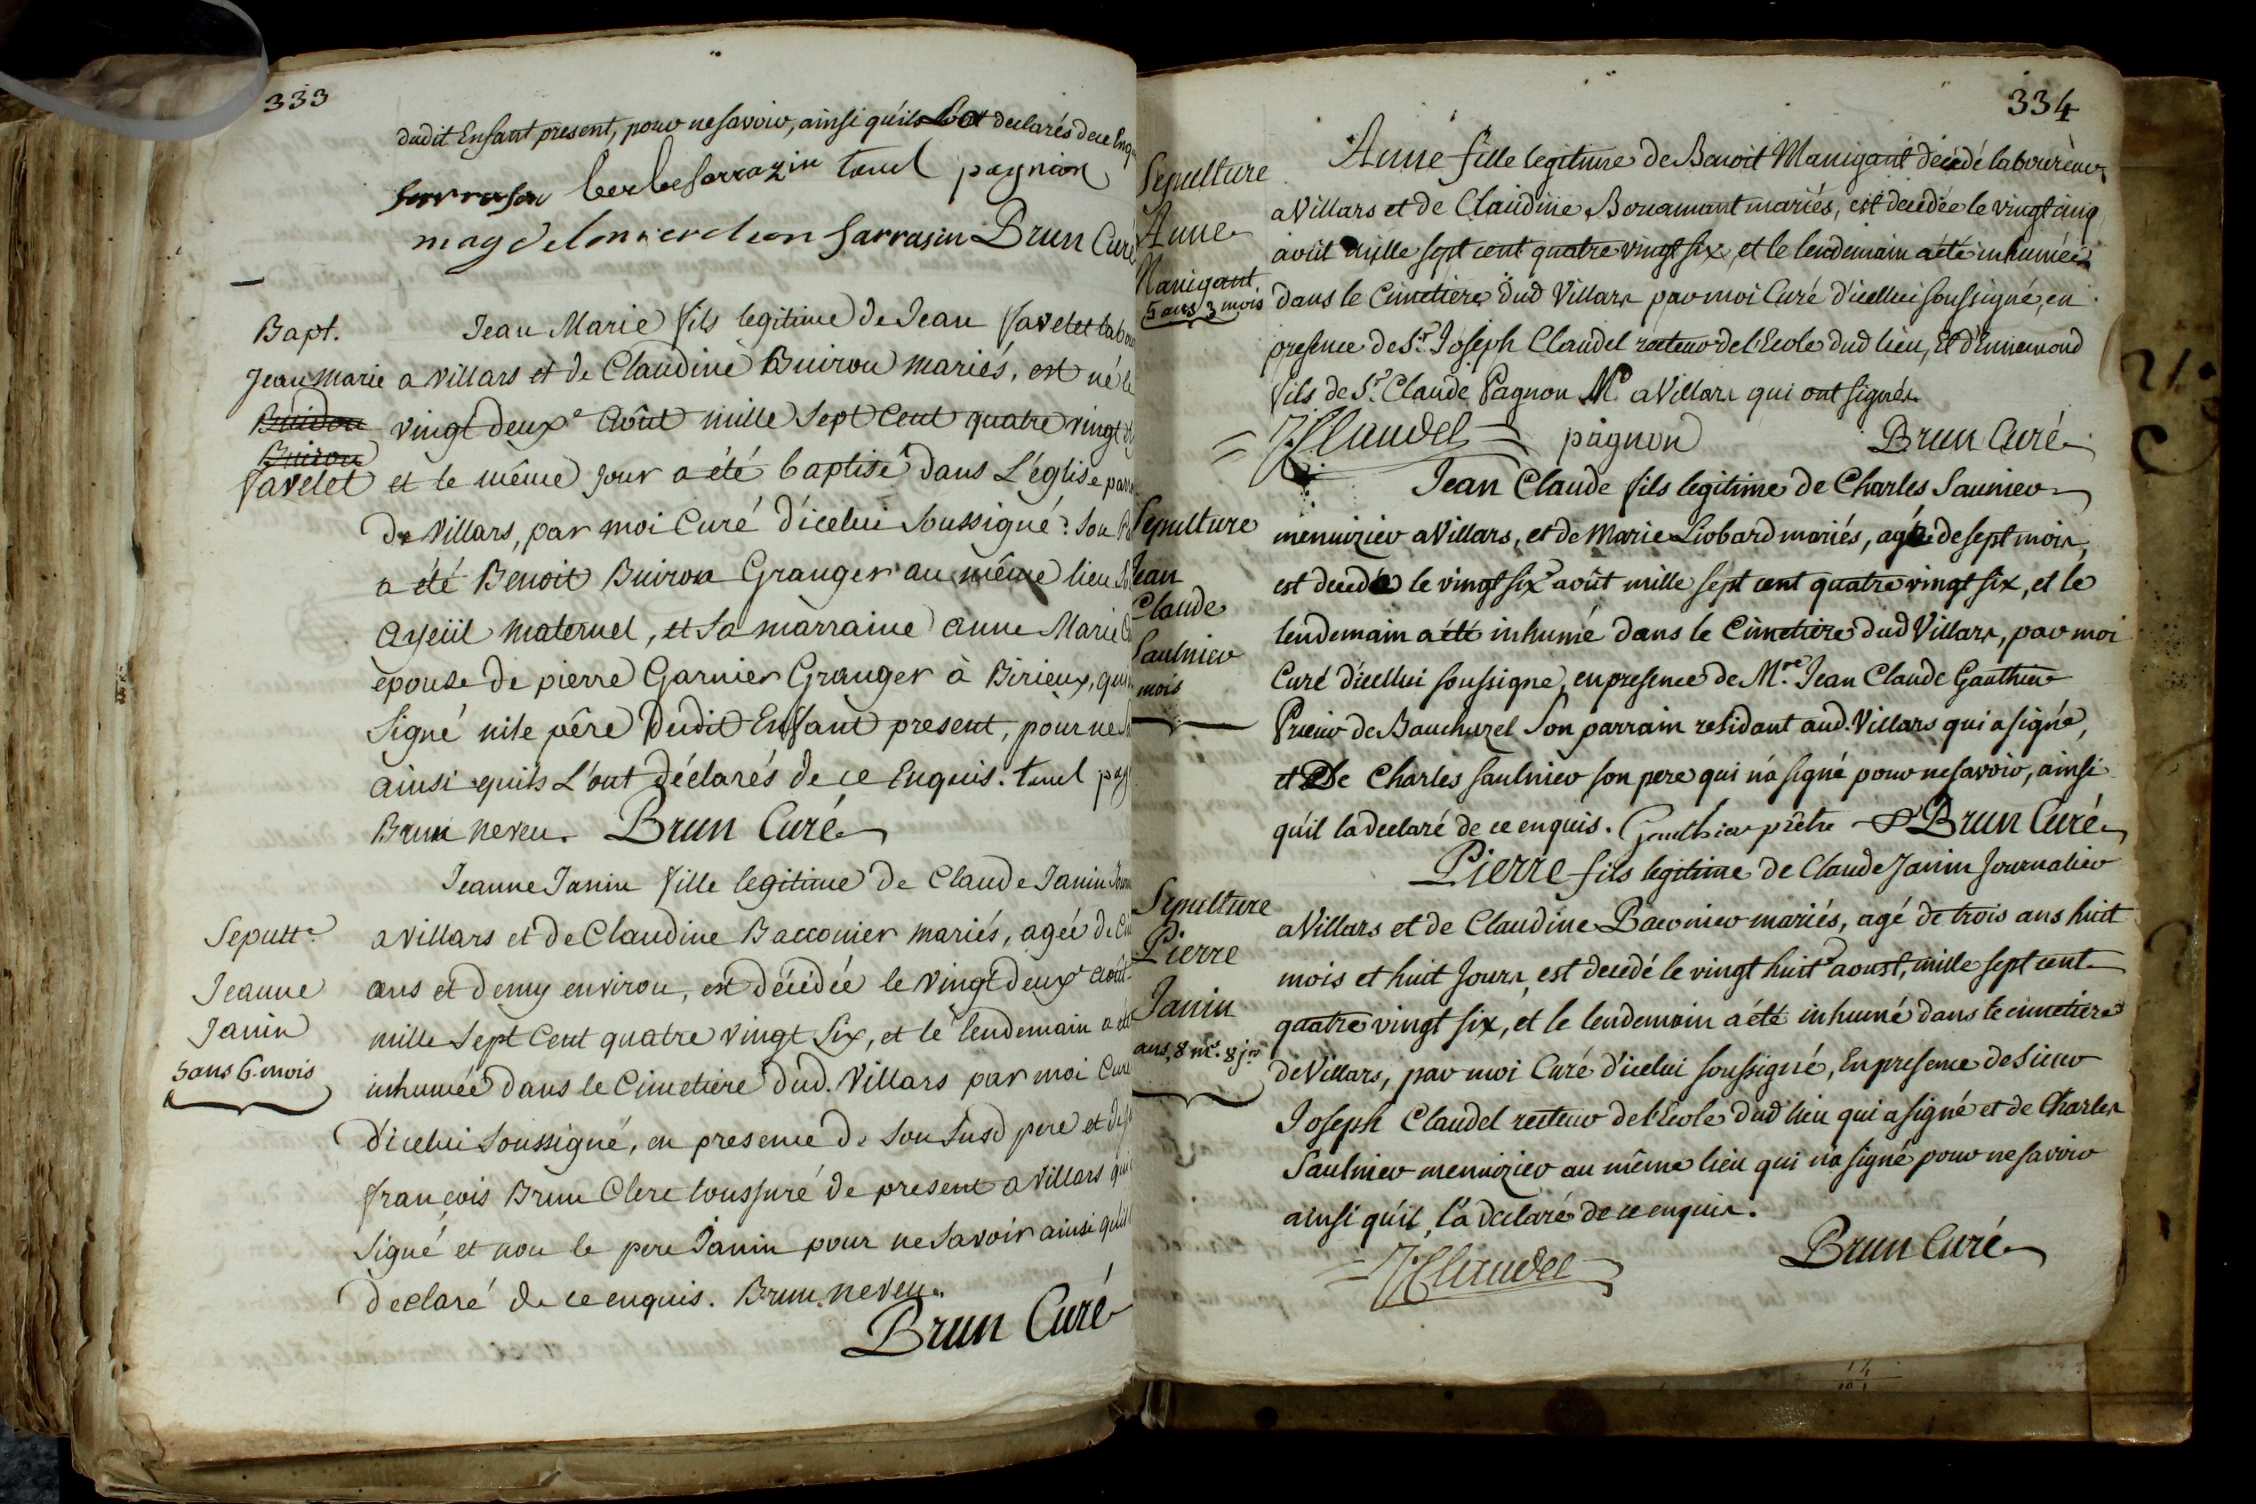 333
dudit Enfant present, pour ne savoir, ainsi quils L'ont declarés de ce Enq
sarrasin berbe sarrazin tanel pagnion
magdelon sarrasin Brun Curé
Bapt.
Jean Marie
Buidon
Buiron
favelet
Jean Marie fils legitime de Jean favelet lab
a villars et de Claudine Buiron mariés, est né le
vingt deuxe Août mille Sept Cent quatre vingt
et le même jour a été baptisé dans L'église par
de villars, par moi Curé d'icelui Soussigné : Son
a été Benoit Buiron Granger au même lieu
ayeüil maternel, et Sa marraine anne Marie
epouse de pierre Garnier Granger à Birieux, qui
Signé ni le père dudit Enfant present, pour ne
ainsi quils L'ont déclarés de ce Enquis. tanel pag
Brun neveu. Brun Curé
Sepultre
Jeanne
Janin
5 ans 6 mois
Jeanne Janin fille legitime de Claude Janin Journ
a villars et de Claudine Bacconier mariés, ageé de
ans et demy environ, est décédée le vingt deuxe août
mille Sept Cent quatre vingt Six, et le lendemain a été
inhumée dans le Cimetiere dud. Villars par moi Curé
d'icelui Soussigné, en presence de Son Susd pere et de
françois Brun Clerc tonsuré de present a villars qui
Signé et non le pere Janin pour ne Savoir ainsi qu'il
declaré de ce enquis. Brun neveu.
Brun Curé
334
Sepulture
Anne
Manigant
5 ans 3 mois
Anne fille legitime de Benoit Manigant décédé laboureur
a Villars et de Claudine Bonamant mariés, est decedée le vingt cinq
août mille sept cent quatre vingt six, et le lendemain a été inhumée
dans le Cimetiere dud Villars par moi Curé d'icellui soussigné, en
presence de Sr. Joseph Claudel recteur de l'Ecole dud lieu, Et d'Ennemond
fils de Sr. Claude Pagnon Md. a Villars qui ont signés.
J. Claudel pagnon Brun Curé
Sepulture
Jean
Claude
Saulnier
mois
Jean Claude fils legitime de Charles Saunier
menuizier a Villars, et de Marie Liobard mariés, agé de sept mois,
est decedé le vingt sixe août mille sept cent quatre vingt six, et le
lendemain a été inhumé dans le Cimetiere dud Villars, par moi
Curé d'icellui soussigne, en presence de Mre. Jean Claude Gauthier
Prieur de Bauchuzel Son parrain residant aud. Villars qui a signé,
et De Charles Saulnier son pere qui n'a signé pour ne savoir, ainsi
qu'il la declaré de ce enquis. Gauthier prêtre Brun Curé
Sepulture
Pierre
Janin
ans, 8 ms. 8 jrs
Pierre fils legitime de Claude Janin Journalier
a Villars et de Claudine Baconier mariés, agé de trois ans huit
mois et huit Jours, est decedé le vingt huite aoust, mille sept cent
quatre vingt six, et le lendemain a été inhumé dans le cimetiere
de Villars, par moi Curé d'icelui soussigné, En presence de Sieur
Joseph Claudel recteur de l'école dud lieu qui a signé et de Charles
Saulnier menuizier au même lieu qui n'a signé pour ne savoir
ainsi qu'il l'a declaré de ce enquis.
J. Claudel Brun Curé